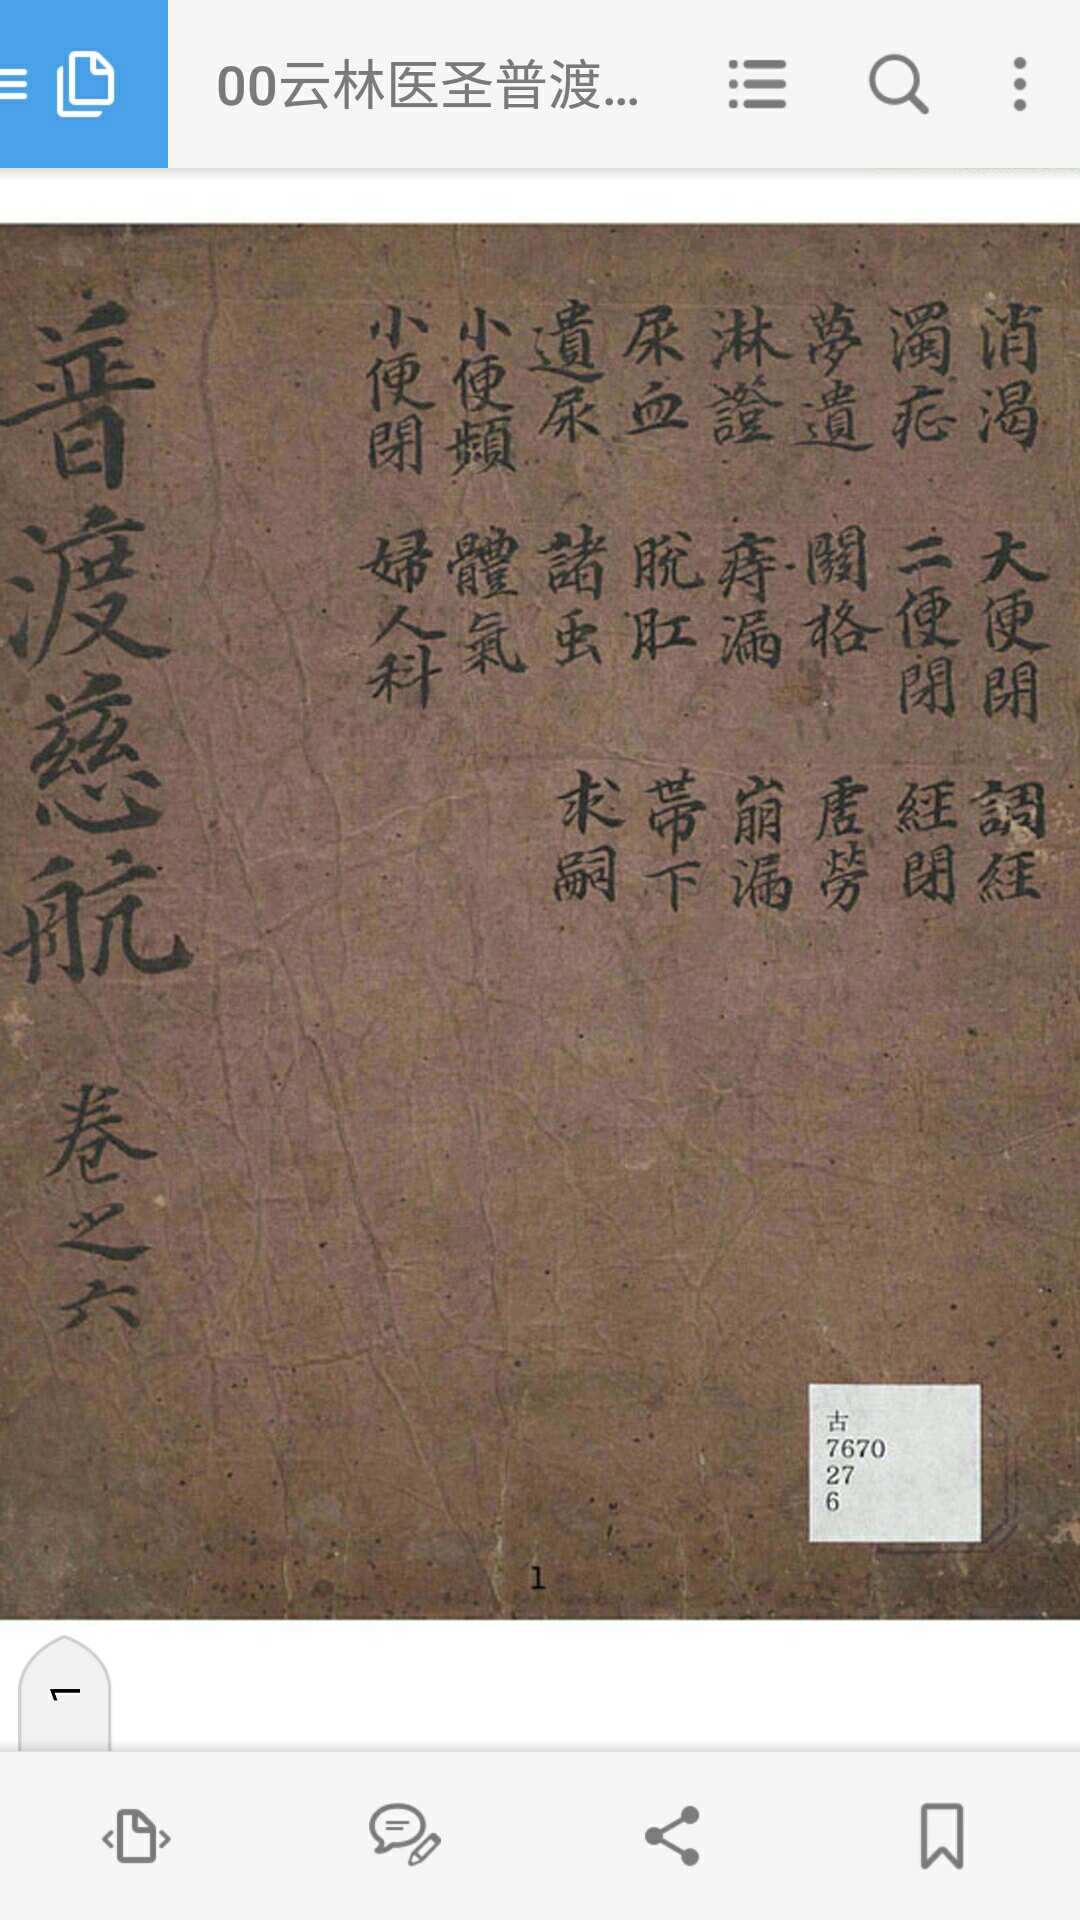 00云林医圣普渡...
消渴
濁症
夢遺
淋證
尿血
遺尿
小便頻
小便閉
大便閉
二便閉
關格
痔漏
脫肛
諸虫
體氣
婦人科
調經
經閉
虛勞
崩漏
帶下
求嗣
普渡慈航 卷之六
古
7670
27
6
1
1